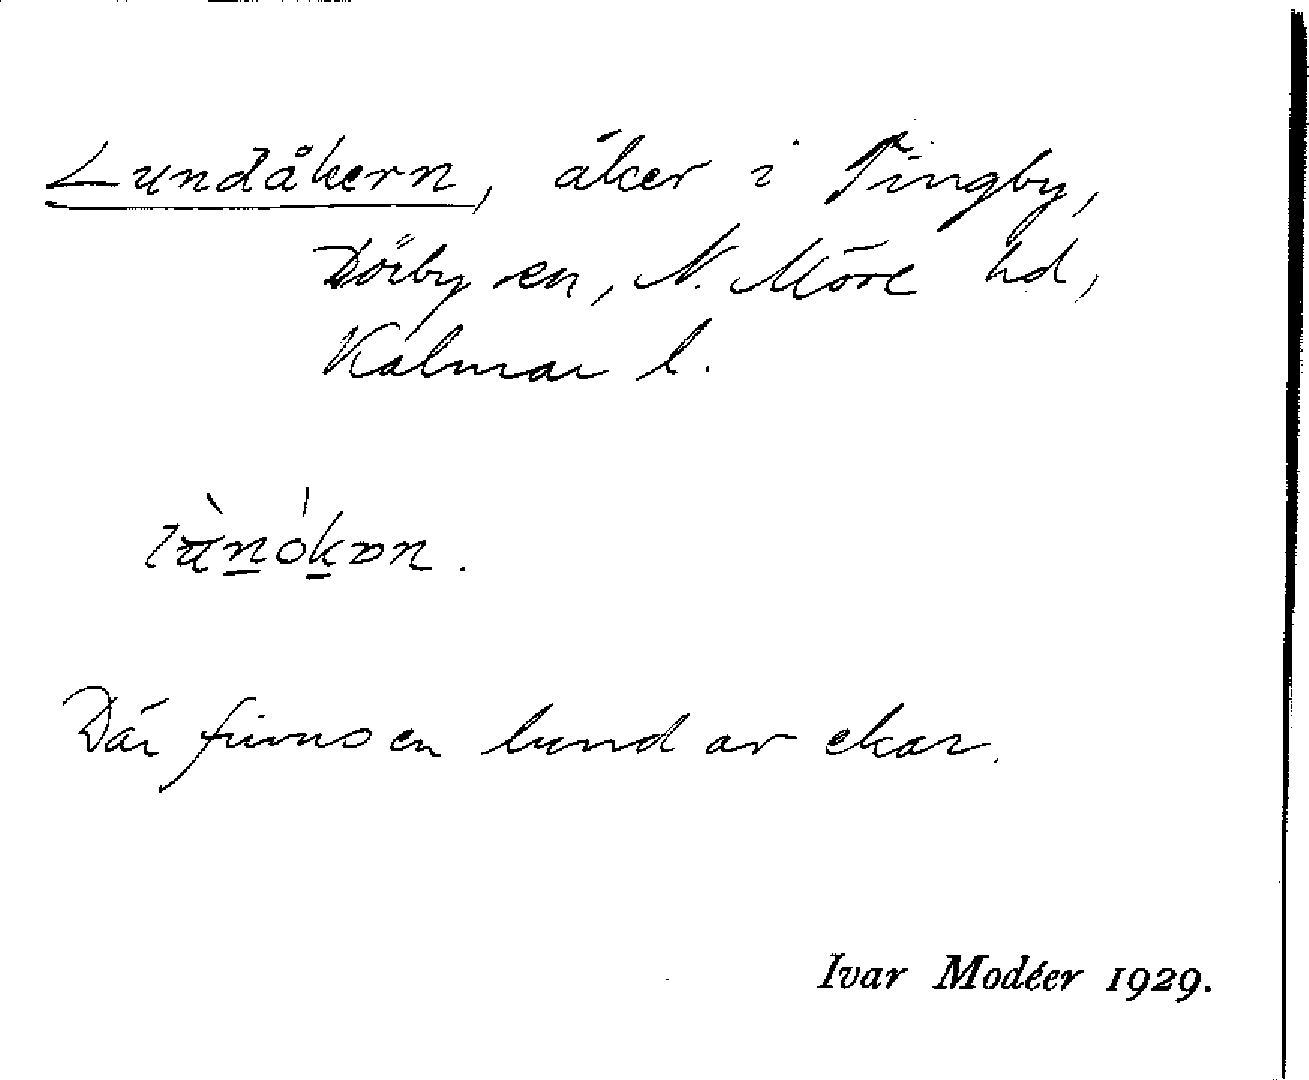 Lundåkern, åker i Tingby,
Dörby sn, N. Möre hd,
Kalmar l.
Där finns en lund av ekar.
Ivar Modéer 1929.